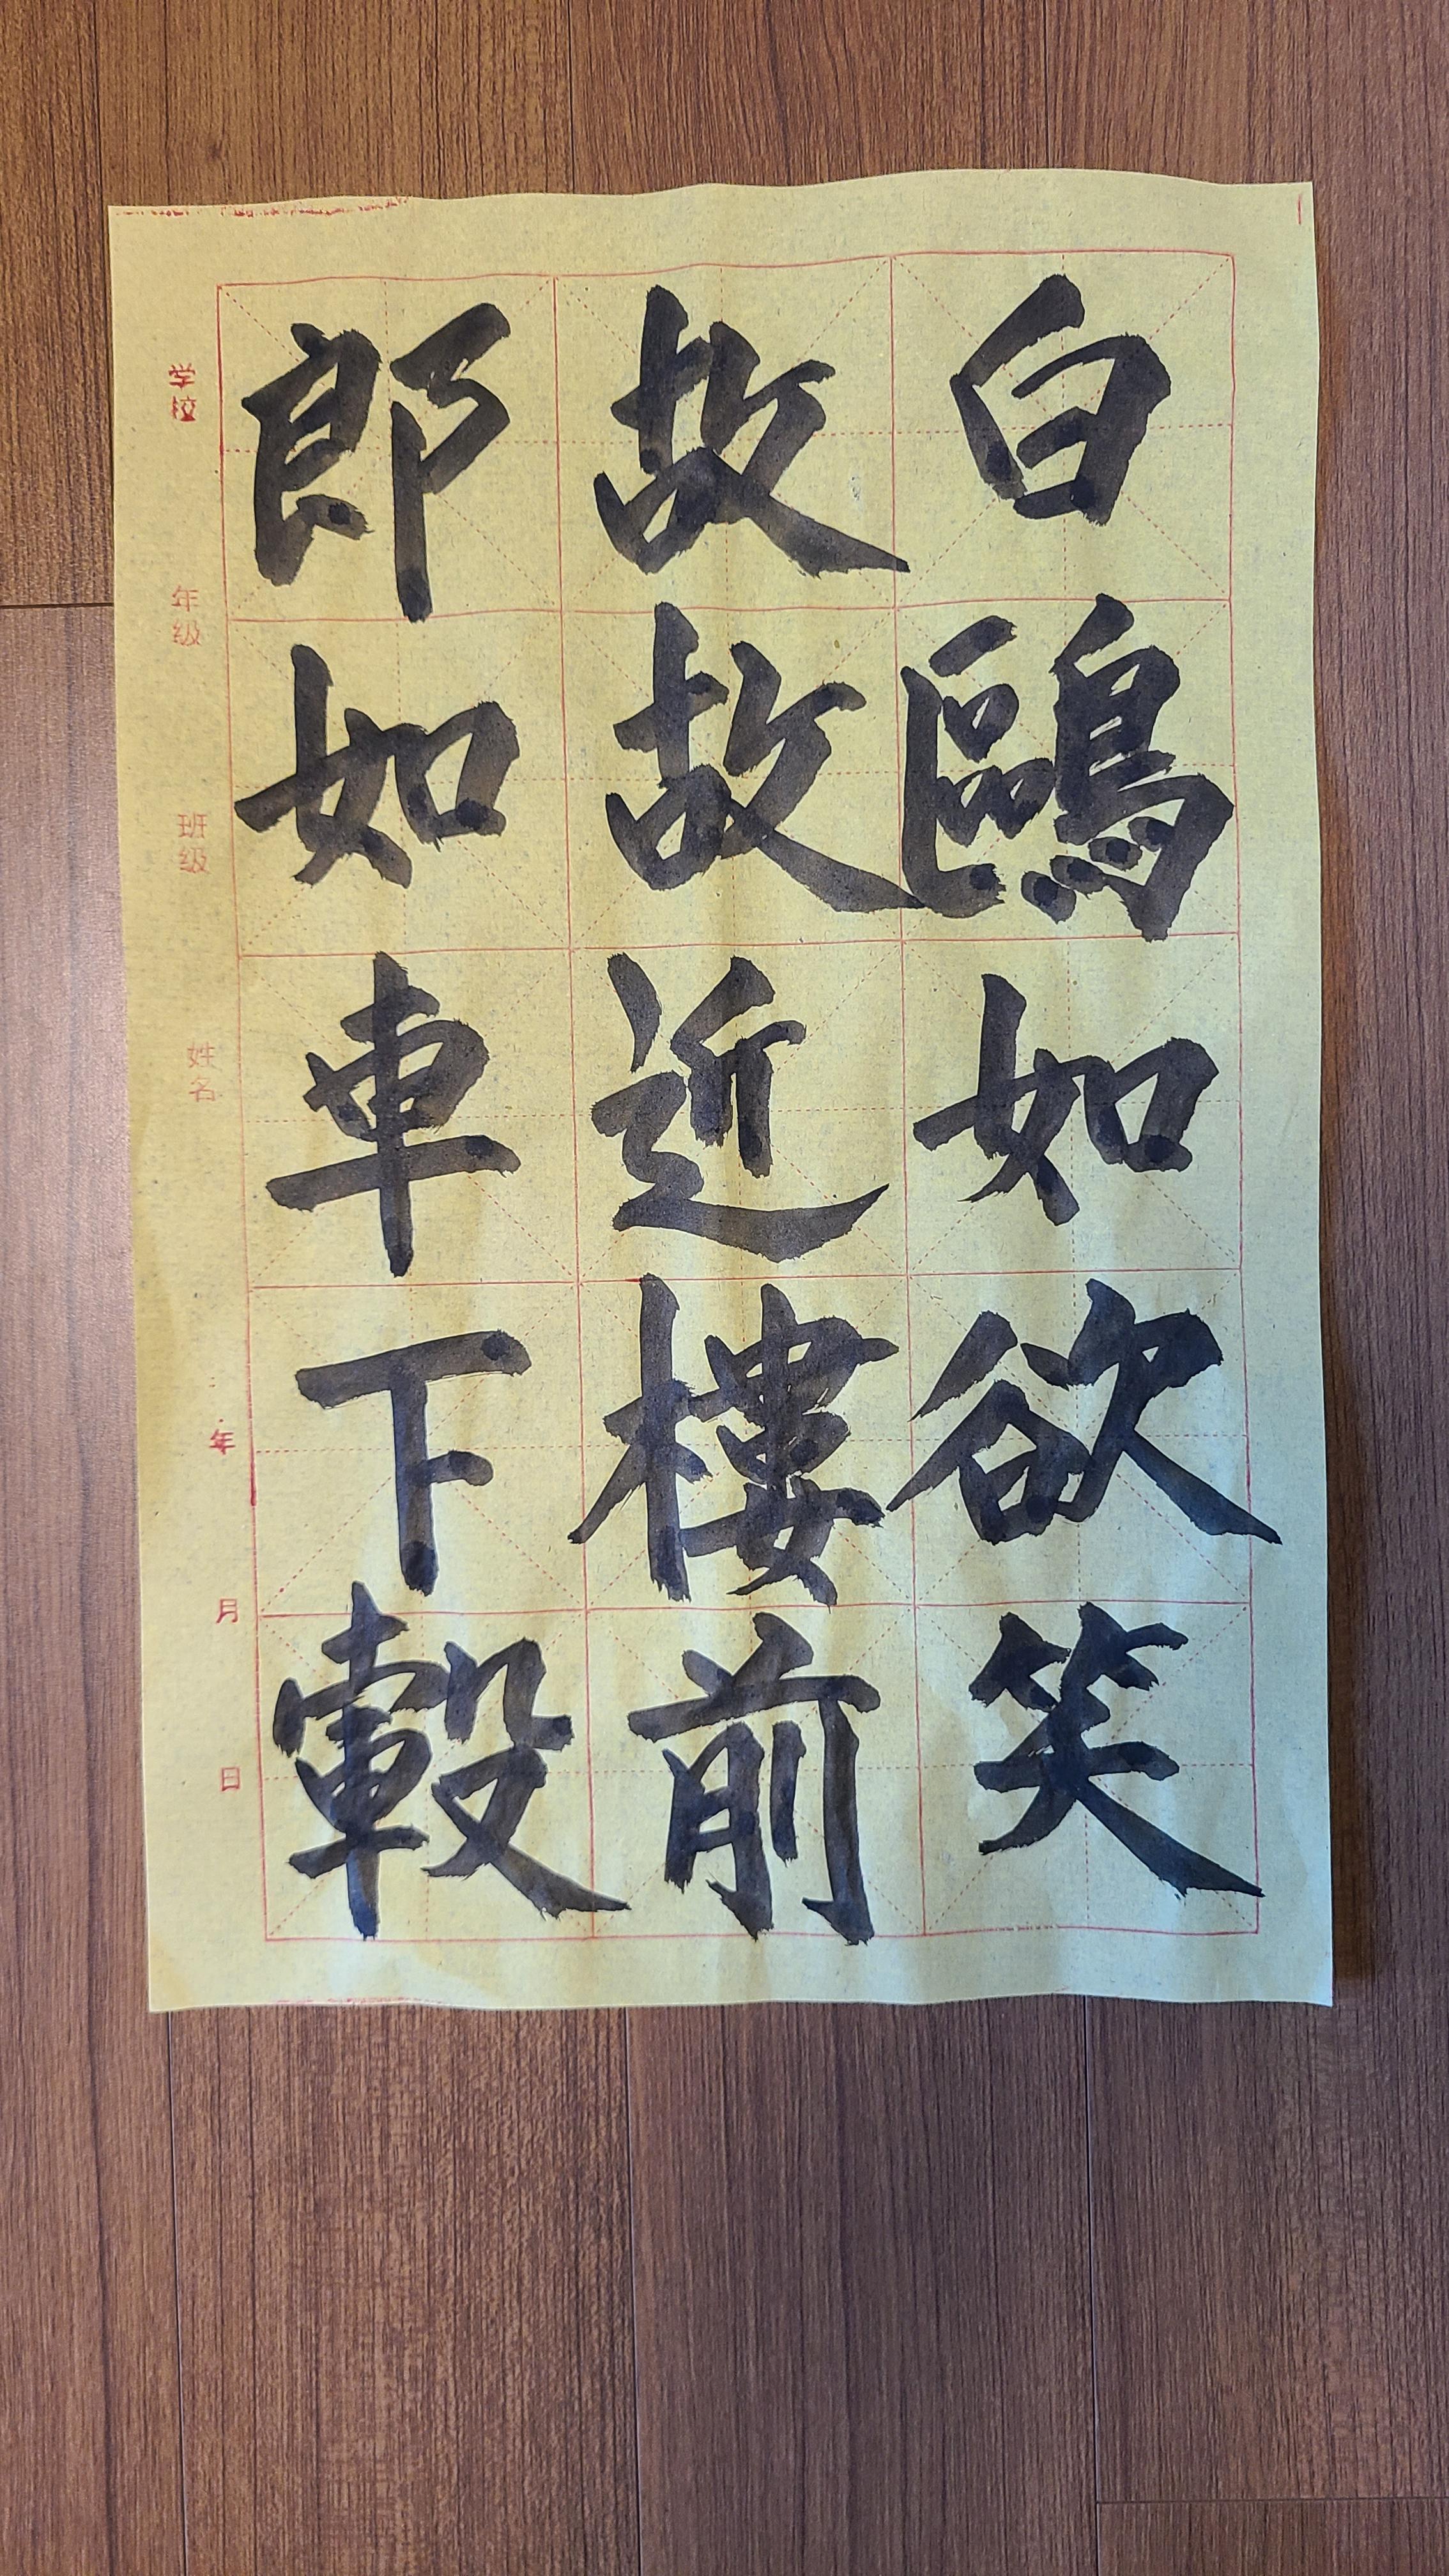 白鷗如欲笑
故故近樓前
郎如車下轂
学校
年级
班级
姓名
年
月
日